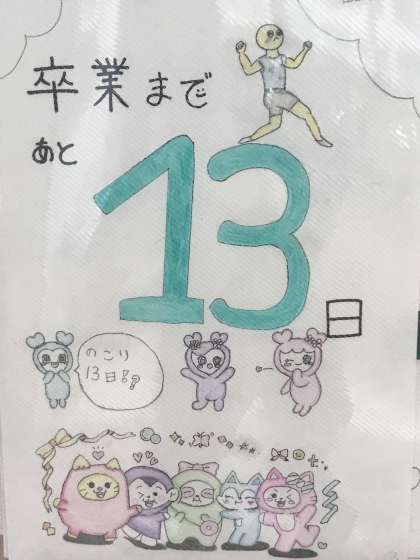 卒業まで
あと
13
日
のこり
13日!?